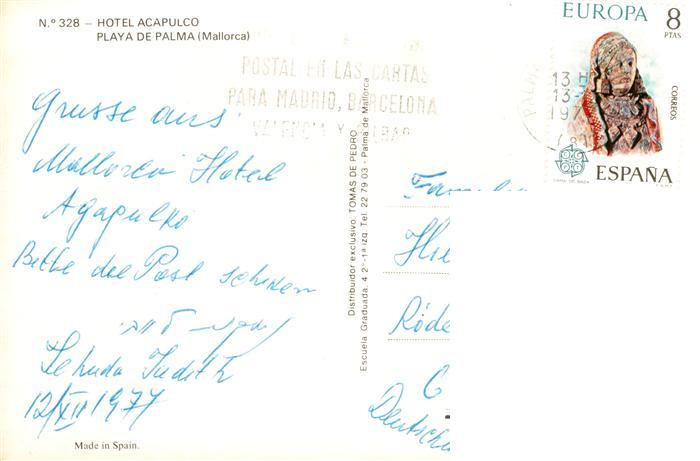 N.º 328 - HOTEL ACAPULCO
PLAYA DE PALMA (Mallorca)
POSTAL EN LAS CARTAS
PARA MADRID, BARCELONA
VALENCIA Y BILBAO
EUROPA 8
PTAS
CORREOS
ESPAÑA
13 H
13-
197
Grusse aus
Mallorca Hotel
Agapulko
Bitte die Post schicken
Jehuda Judith
12/XII 1977
Made in Spain.
Distribuidor exclusivo: TOMAS DE PEDRO
Escuela Graduada, 4 2º-1ª izq. Tel. 22 79 03 - Palma de Mallorca
Familie
Röde
Deutsch